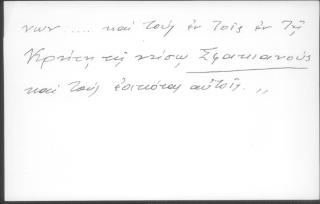 νων .... καὶ τοὺς ἐν τοῖς ἐν τῇ
Κρήτῃ τῇ νήσῳ Σφακιανοὺς
καὶ τοὺς ἐοικότας αὐτοῖς. ,,